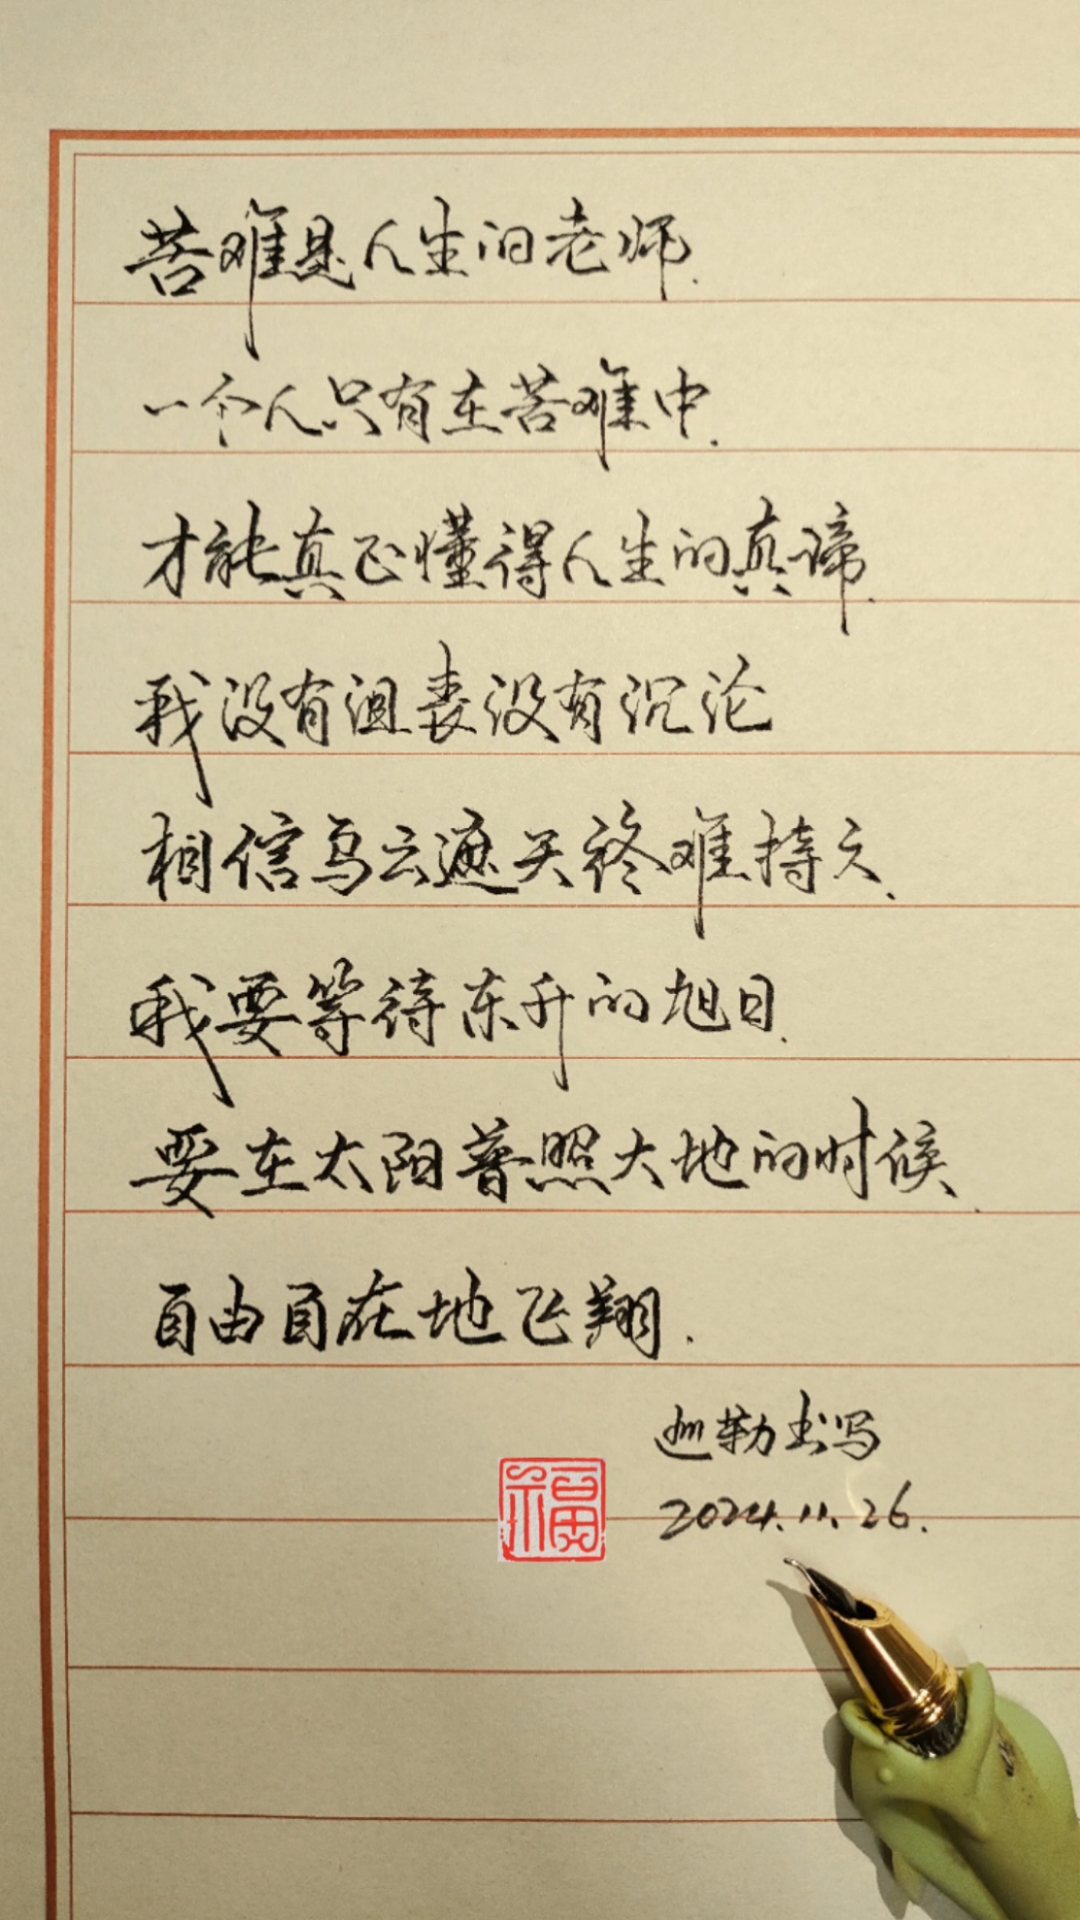 苦难是人生的老师.
一个人只有在苦难中.
才能真正懂得人生的真谛.
我没有沮丧没有沉沦
相信乌云遮天终难持久.
我要等待东升的旭日.
要在太阳普照大地的时候.
自由自在地飞翔.
勒书写
福
2024.11.26.